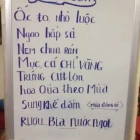 Ốc to nhỏ luộc
Ngao hấp sả
Nem chua rán
Mực, cá CHỈ VÀNG
TRỨNG CÚT LỘN
hoa Quả theo Mùa
Sung Khế dầm
RƯỢU. Bia Nước Ngọt